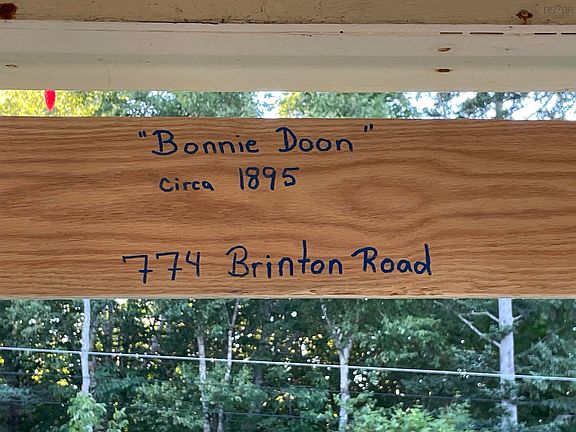 "Bonnie Doon"
circa 1895
774 Brinton Road